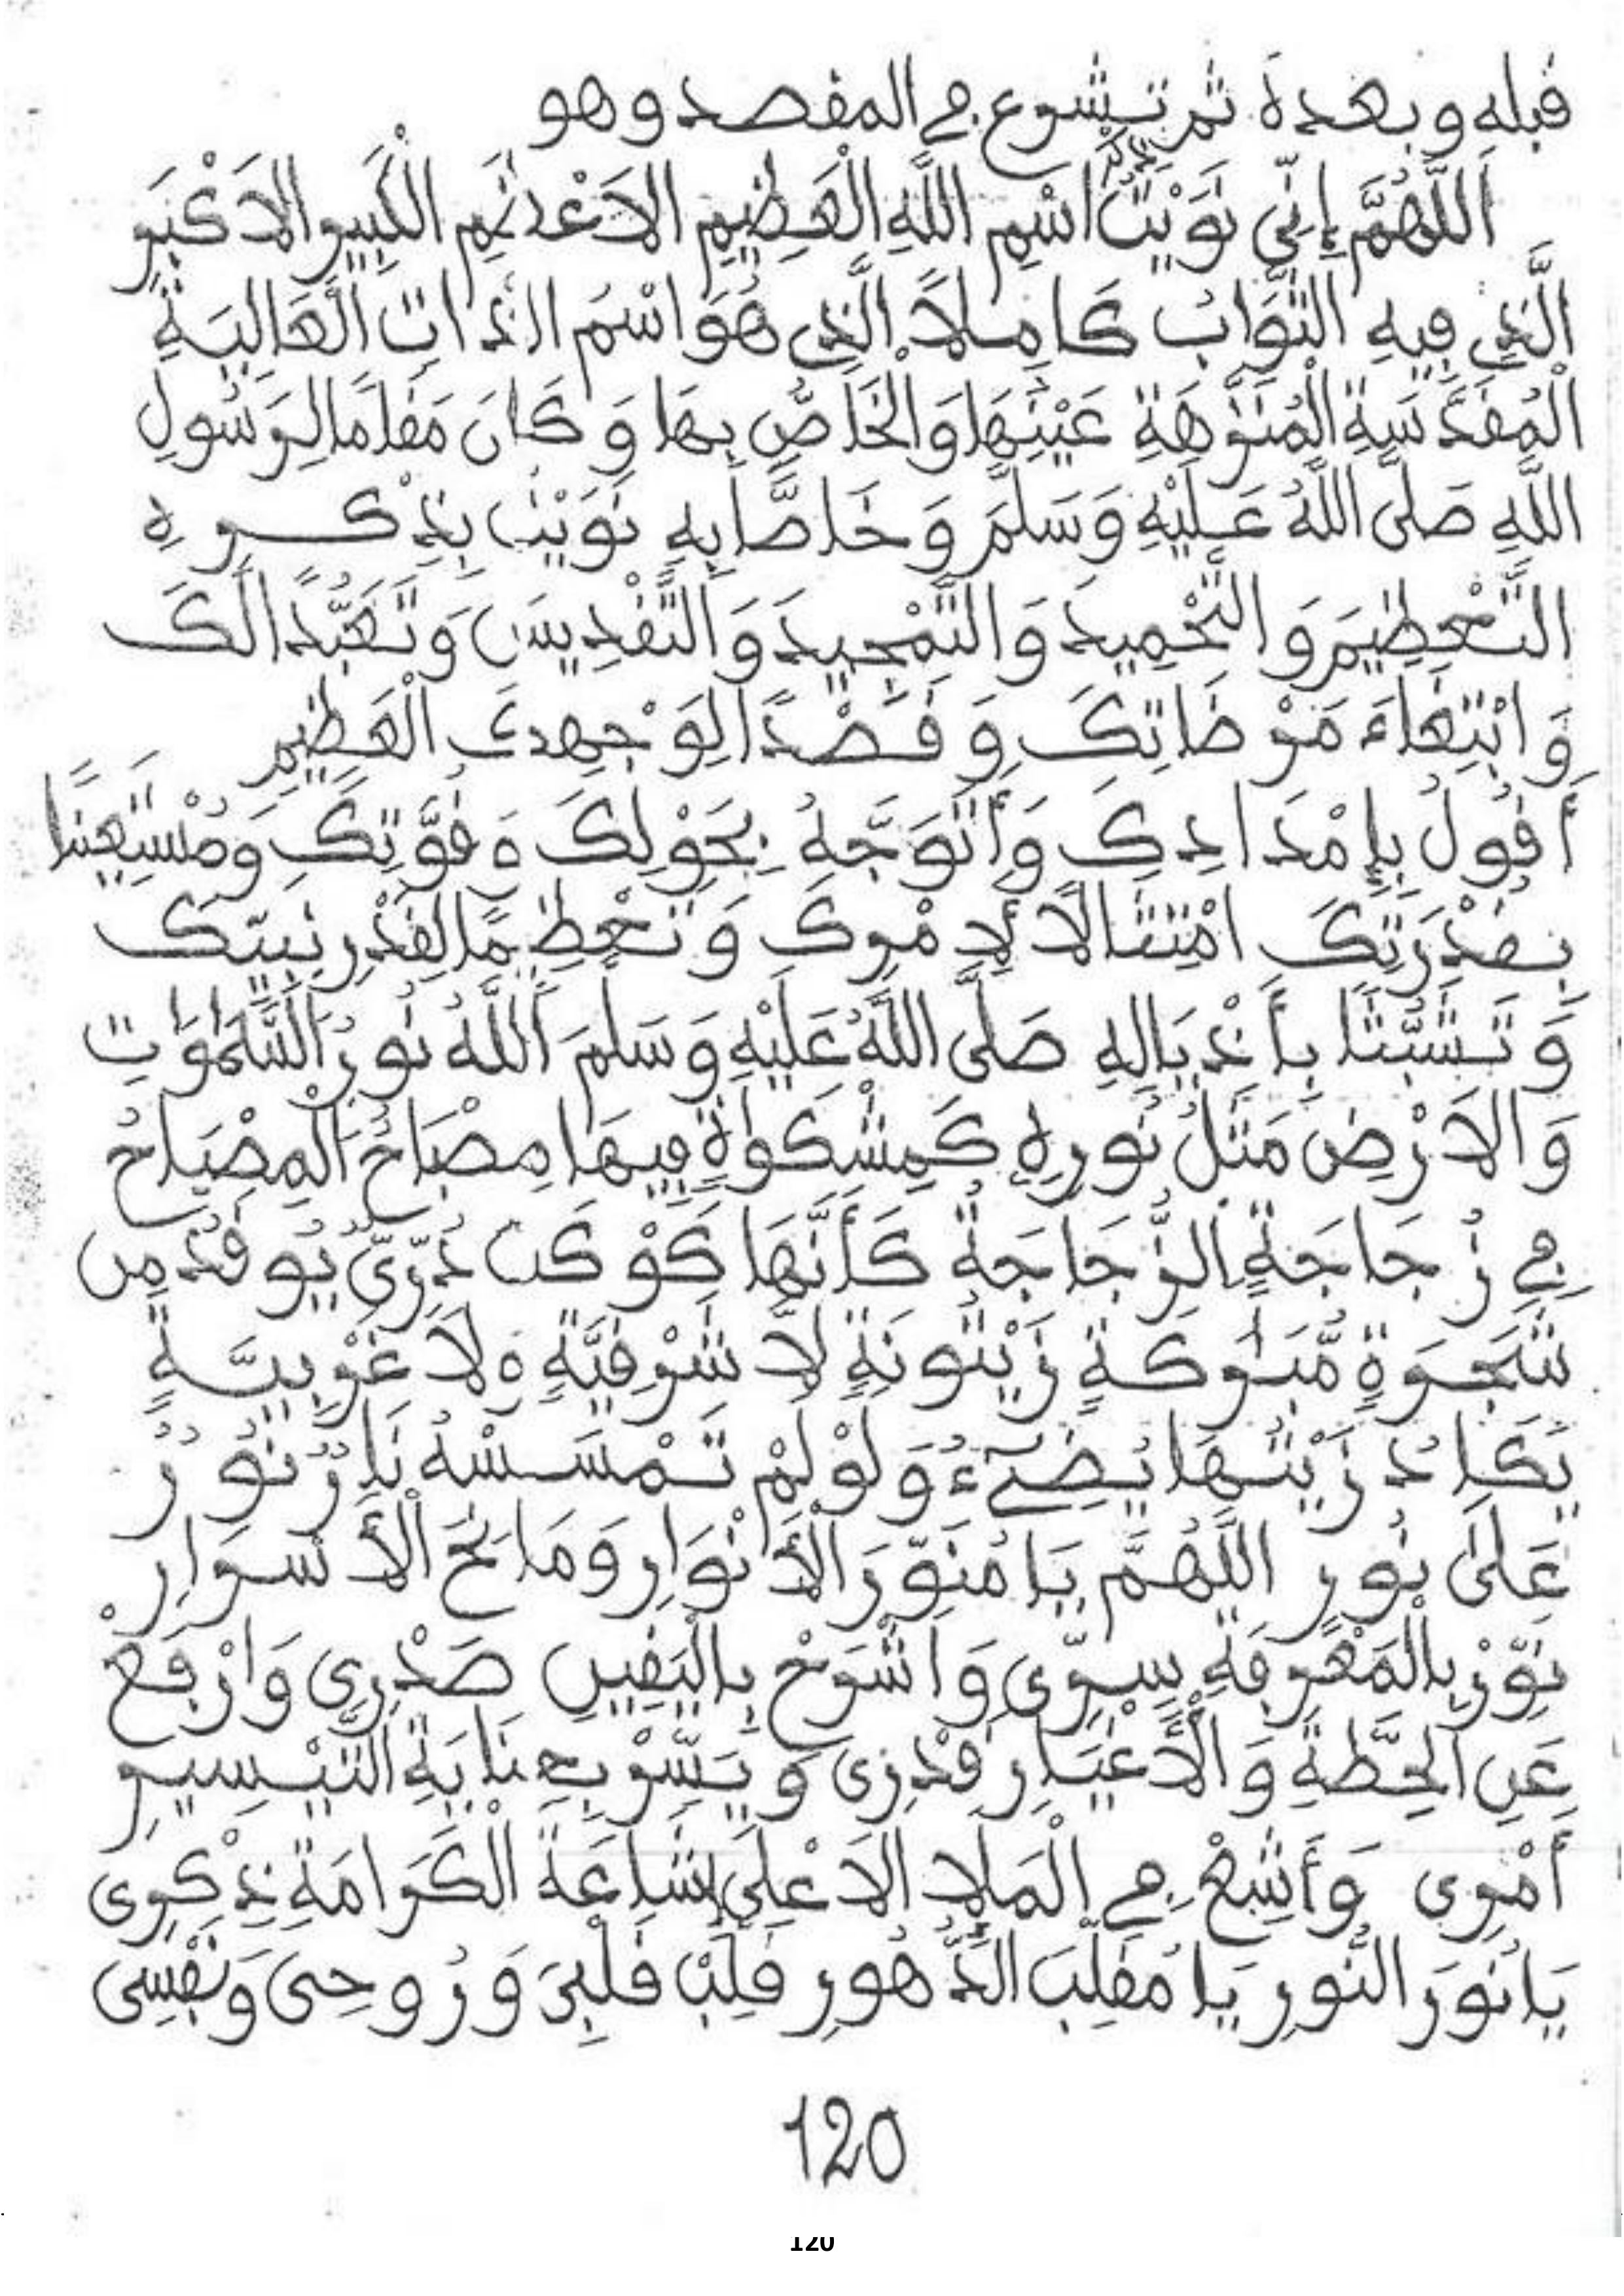 قبله وبعده ثم تشرع في المقصد وهو
اَللَّهُمَّ إِنِّي نَوَيْتُ بذكر اسْمِ اللَّهِ الْعَظِيمِ الاَعْظَمِ الْكَبِيرِ الاَكْبَرِ
الَّذِي فِيهِ الثَّوَابُ كَامِلاً الَّذِي هُوَ اسْمُ الذَاتِ الْعَالِيَةِ
الْمُقَدَّسَةِ الْمُنَزَّهَةِ عَيْنِهَا وَالْخَاصِّ بِهَا وَكَانَ مَقَامًا لِرَسُولِ
اللَّهِ صَلَّى اللَّهُ عَلَيْهِ وَسَلَّمَ وَخَاصًّا بِهِ نَوَيْتُ بِذِكْرِهِ
التَّعْظِيمَ وَالتَّحْمِيدَ وَالتَّمْجِيدَ وَالتَّقْدِيسَ وَتَعَبُّدًا لَكَ
وَابْتِغَاءَ مَرْضَاتِكَ وَقَصْدًا لِوَجْهِكَ الْعَظِيمِ
أَقُولُ بِإِمْدَادِكَ وَأَتَوَجَّهُ بِحَوْلِكَ وَقُوَّتِكَ وَمُسْتَعِينًا
بِقُدْرَتِكَ امْتِثَالاً لِأَمْرِكَ وَتَعْظِيمًا لِقَدْرِ نَبِيِّكَ
وَتَشَبُّثًا بِأَذْيَالِهِ صَلَّى اللَّهُ عَلَيْهِ وَسَلَّمَ اَللَّهُ نُورُ السَّمَٰوَٰتِ
وَالاَرْضِ مَثَلُ نُورِهِ كَمِشْكَوٰةٍ فِيهَا مِصْبَاحٌ الْمِصْبَاحُ
فِي زُجَاجَةٍ الزُّجَاجَةُ كَأَنَّهَا كَوْكَبٌ دُرِّيٌّ يُوقَدُ مِن
شَجَرَةٍ مُّبَٰرَكَةٍ زَيْتُونَةٍ لاَّ شَرْقِيَّةٍ وَلاَ غَرْبِيَّةٍ
يَكَادُ زَيْتُهَا يُضِيٓءُ وَلَوْ لَمْ تَمْسَسْهُ نَارٌ نُّورٌ
عَلَىٰ نُورٍ اللَّهُمَّ يَا مُنَوِّرَ الأَنْوَارِ وَمَانِحَ الأَسْرَارِ
نَوِّرْ بِالْمَعْرِفَةِ سِرِّي وَاشْرَحْ بِالْيَقِينِ صَدْرِي وَارْفَعْ
عَنِ الْحِطَّةِ وَالأَغْيَارِ قَدْرِى وَيَسِّرْ بِعِنَايَةِ التَّيْسِيرِ
أَمْرِى وَأَشِعْ فِي الْمَلاِ الاَعْلَى إِشَاعَةَ الْكَرَامَةِ ذِكْرِى
يَا نُورَ النُّورِ يَا مُقَلِّبَ الدُّهُورِ قَلِّبْ قَلْبِىَ وَرُوحِى وَنَفْسِى
120
120